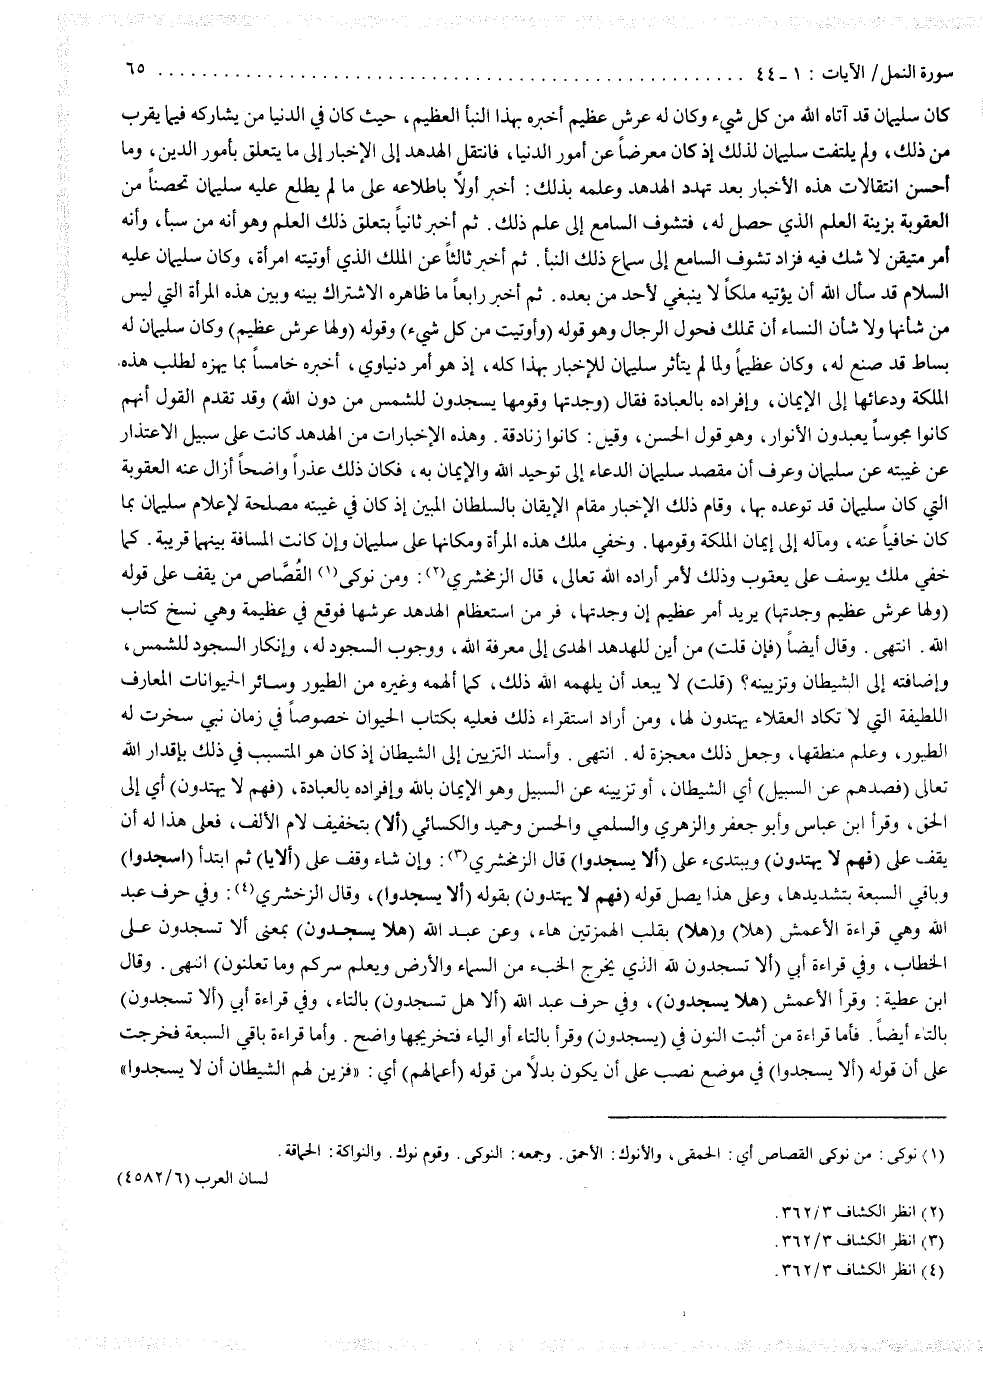 سورة النمل/ الآيات : ١ ـ ٤٤ ............................................................ ٦٥
كان سليمان قد آتاه الله من كل شيء وكان له عرش عظيم أخبره بهذا النبأ العظيم، حيث كان في الدنيا من يشاركه فيما يقرب
من ذلك، ولم يلتفت سليمان لذلك إذ كان معرضاً عن أمور الدنيا، فانتقل الهدهد إلى الإخبار إلى ما يتعلق بأمور الدين، وما
أحسن انتقالات هذه الأخبار بعد تهدد الهدهد وعلمه بذلك: أخبر أولاً باطلاعه على ما لم يطلع عليه سليمان تحصناً من
العقوبة بزينة العلم الذي حصل له، فتشوف السامع إلى علم ذلك. ثم أخبر ثانياً بتعلق ذلك العلم وهو أنه من سبأ، وأنه
أمر متيقن لا شك فيه فزاد تشوف السامع إلى سماع ذلك النبأ. ثم أخبر ثالثاً عن الملك الذي أوتيته امرأة، وكان سليمان عليه
السلام قد سأل الله أن يؤتيه ملكاً لا ينبغي لأحد من بعده. ثم أخبر رابعاً ما ظاهره الاشتراك بينه وبين هذه المرأة التي ليس
من شأنها ولا شأن النساء أن تملك فحول الرجال وهو قوله (وأوتيت من كل شيء) وقوله (ولها عرش عظيم) وكان سليمان له
بساط قد صنع له، وكان عظيماً ولما لم يتأثر سليمان للإخبار بهذا كله، إذ هو أمر دنياوي، أخبره خامساً بما يهزه لطلب هذه
الملكة ودعائها إلى الإيمان، وإفراده بالعبادة فقال (وجدتها وقومها يسجدون للشمس من دون الله) وقد تقدم القول أنهم
كانوا مجوساً يعبدون الأنوار، وهو قول الحسن، وقيل: كانوا زنادقة. وهذه الإخبارات من الهدهد كانت على سبيل الاعتذار
عن غيبته عن سليمان وعرف أن مقصد سليمان الدعاء إلى توحيد الله والإيمان به، فكان ذلك عذراً واضحاً أزال عنه العقوبة
التي كان سليمان قد توعده بها، وقام ذلك الإخبار مقام الإيقان بالسلطان المبين إذ كان في غيبته مصلحة لإعلام سليمان بما
كان خافياً عنه، ومآله إلى إيمان الملكة وقومها. وخفي ملك هذه المرأة ومكانها على سليمان وإن كانت المسافة بينهما قريبة. كما
خفي ملك يوسف على يعقوب وذلك لأمر أراده الله تعالى، قال الزمخشري(٢): ومن نوكى(١) القُصَّاص من يقف على قوله
(ولها عرش عظيم وجدتها) يريد أمر عظيم إن وجدتها، فر من استعظام الهدهد عرشها فوقع في عظيمة وهي نسخ كتاب
الله. انتهى. وقال أيضاً (فإن قلت) من أين للهدهد الهدى إلى معرفة الله، ووجوب السجود له، وإنكار السجود للشمس،
وإضافته إلى الشيطان وتزيينه؟ (قلت) لا يبعد أن يلهمه الله ذلك، كما ألهمه وغيره من الطيور وسائر الحيوانات المعارف
اللطيفة التي لا تكاد العقلاء يهتدون لها، ومن أراد استقراء ذلك فعليه بكتاب الحيوان خصوصاً في زمان نبي سخرت له
الطيور، وعلم منطقها، وجعل ذلك معجزة له. انتهى. وأسند التزيين إلى الشيطان إذ كان هو المتسبب في ذلك بإقدار الله
تعالى (فصدهم عن السبيل) أي الشيطان، أو تزيينه عن السبيل وهو الإيمان بالله وإفراده بالعبادة، (فهم لا يهتدون) أي إلى
الحق، وقرأ ابن عباس وأبو جعفر والزهري والسلمي والحسن وحميد والكسائي (ألا) بتخفيف لام الألف، فعلى هذا له أن
يقف على (فهم لا يهتدون) ويبتدىء على (ألا يسجدوا) قال الزمخشري(٣): وإن شاء وقف على (ألايا) ثم ابتدأ (اسجدوا)
وباقي السبعة بتشديدها، وعلى هذا يصل قوله (فهم لا يهتدون) بقوله (ألا يسجدوا)، وقال الزخشري(٤): وفي حرف عبد
الله وهي قراءة الأعمش (هلا) و(هلا) بقلب الهمزتين هاء، وعن عبد الله (هلا يسجدون) بمعنى ألا تسجدون على
الخطاب، وفي قراءة أبي (ألا تسجدون لله الذي يخرج الخبء من السماء والأرض ويعلم سركم وما تعلنون) انتهى. وقال
ابن عطية: وقرأ الأعمش (هلا يسجدون)، وفي حرف عبد الله (ألا هل تسجدون) بالتاء، وفي قراءة أبي (ألا تسجدون)
بالتاء أيضاً. فأما قراءة من أثبت النون في (يسجدون) وقرأ بالتاء أو الياء فتخريجها واضح. وأما قراءة باقي السبعة فخرجت
على أن قوله (ألا يسجدوا) في موضع نصب على أن يكون بدلاً من قوله (أعمالهم) أي: «فزين لهم الشيطان أن لا يسجدوا»
(١) نوكى: من نوكى القصاص أي: الحمقى، والأنوك: الأحمق. وجمعه: النوكى. وقوم نوك. والنواكة: الحماقة.
لسان العرب (٤٥٨٢/٦)
(٢) انظر الكشاف ٣٦٢/٣.
(٣) انظر الكشاف ٣٦٢/٣.
(٤) انظر الكشاف ٣٦٢/٣.